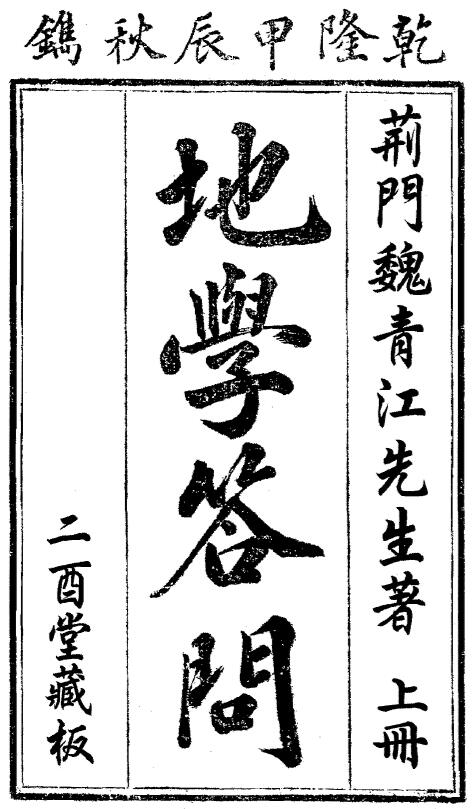 乾隆甲辰秋鐫
荊門魏青江先生著 上冊
地學答問
二酉堂藏板